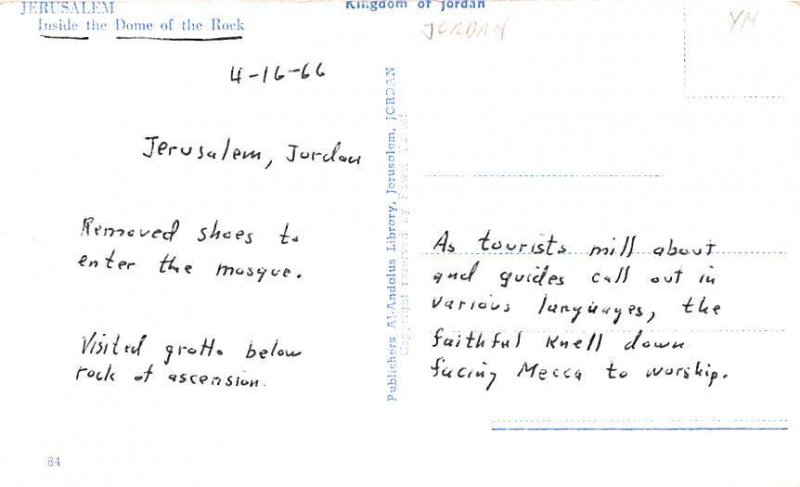 JERUSALEM
Inside the Dome of the Rock
Kingdom of Jordan
JORDAN
YM
4-16-66
Jerusalem, Jordan
Removed shoes to
enter the mosque.
Visited grotto below
rock of ascension.
Publishers Al-Andalus Library, Jerusalem, JORDAN
Copyright reserved by
As tourists mill about
and guides call out in
various languages, the
faithful knell down
facing Mecca to worship.
84